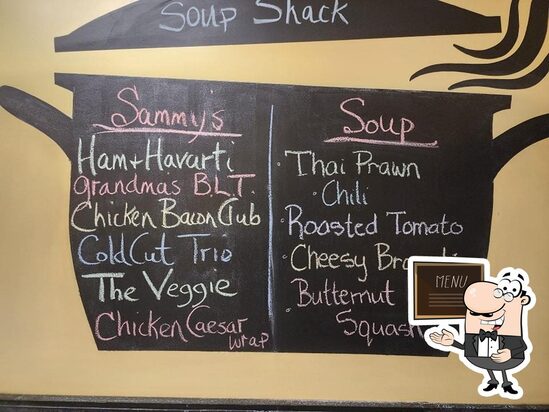 Soup Shack
Sammy's
Ham + Havarti
Grandmas B.L.T.
Chicken Bacon Club
Cold Cut Trio
The Veggie
Chicken Caesar
wrap
Soup
Thai Prawn
Chili
Roasted Tomato
Cheesy
Butternut
Squash
MENU